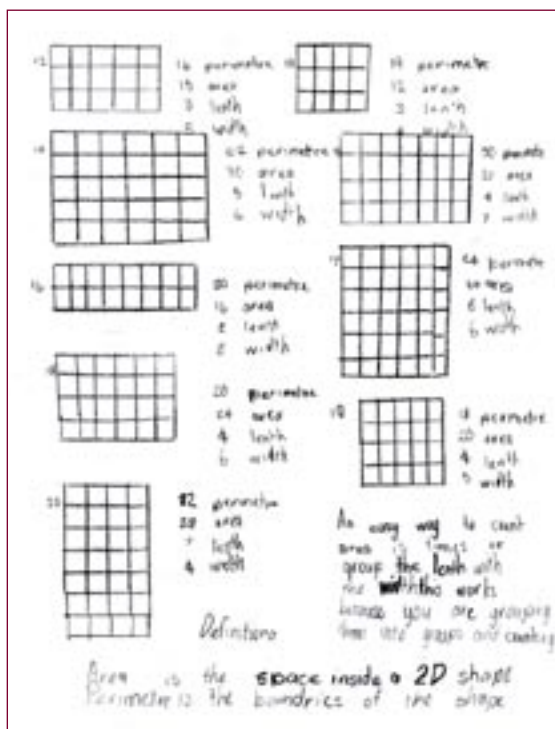 12
16 perimetre
15 area
3 lenth
5 width
14 perimetre
12 area
3 lenth
width
22 perimetre
30 area
5 lenth
6 width
area
4 lenth
7 width
16
20 perimetre
16 area
2 lenth
8 width
24 perimetre
area
6 lenth
6 width
20 perimetre
24 area
4 lenth
6 width
18
18 perimetre
20 area
4 lenth
5 width
22 perimetre
28 area
7 lenth
4 width
An easy way to count
area is times or
group the lenth with
the width this works
because you are grouping
them into groups and counting
Definitions
Area is the space inside a 2D shape
Perimetre is the boundries of the shape